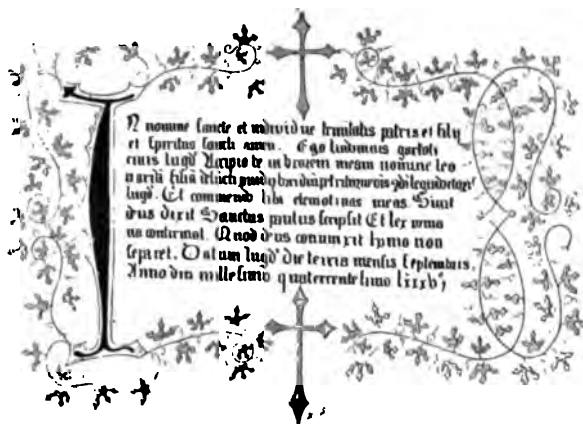 N nomine sancte et individue trinitatis patris et filii
et spiritus sancti amen. Ego ludovicus
civis lugd' Accipio te in uxorem meam nomine leo
narda filia
lugd'. Et commendo tibi elemosinas meas. Sicut
deus dixit Sanctus paulus scripsit Et lex roma
na confirmat. Quod deus coniunxit homo non
separet. Datum lugd' die tercia mensis septembris.
Anno dni millesimo quatercentesimo lxxxv